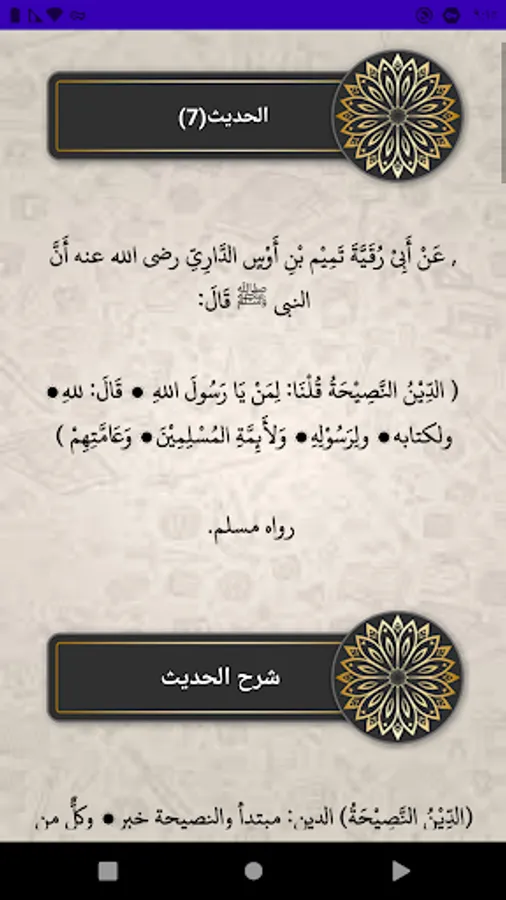 الحديث(7)
, عَنْ أَبِيْ رُقَيَّةَ تَمِيْم بْنِ أَوْسٍ الدَّارِيِّ رضى الله عنه أَنَّ
النبى ﷺ قَالَ:
( الدِّيْنُ النَّصِيْحَةُ قُلْنَا: لِمَنْ يَا رَسُولَ اللهِ ● قَالَ: للهِ●
ولكتابه● ولِرَسُوْلِهِ● وَلأَئِمَّةِ المُسْلِمِيْنَ● وَعَامَّتِهِمْ )
رواه مسلم.
شرح الحديث
(الدِّيْنُ النَّصِيْحَةُ) الدين: مبتدأ والنصيحة خبر ● وكلٌّ من